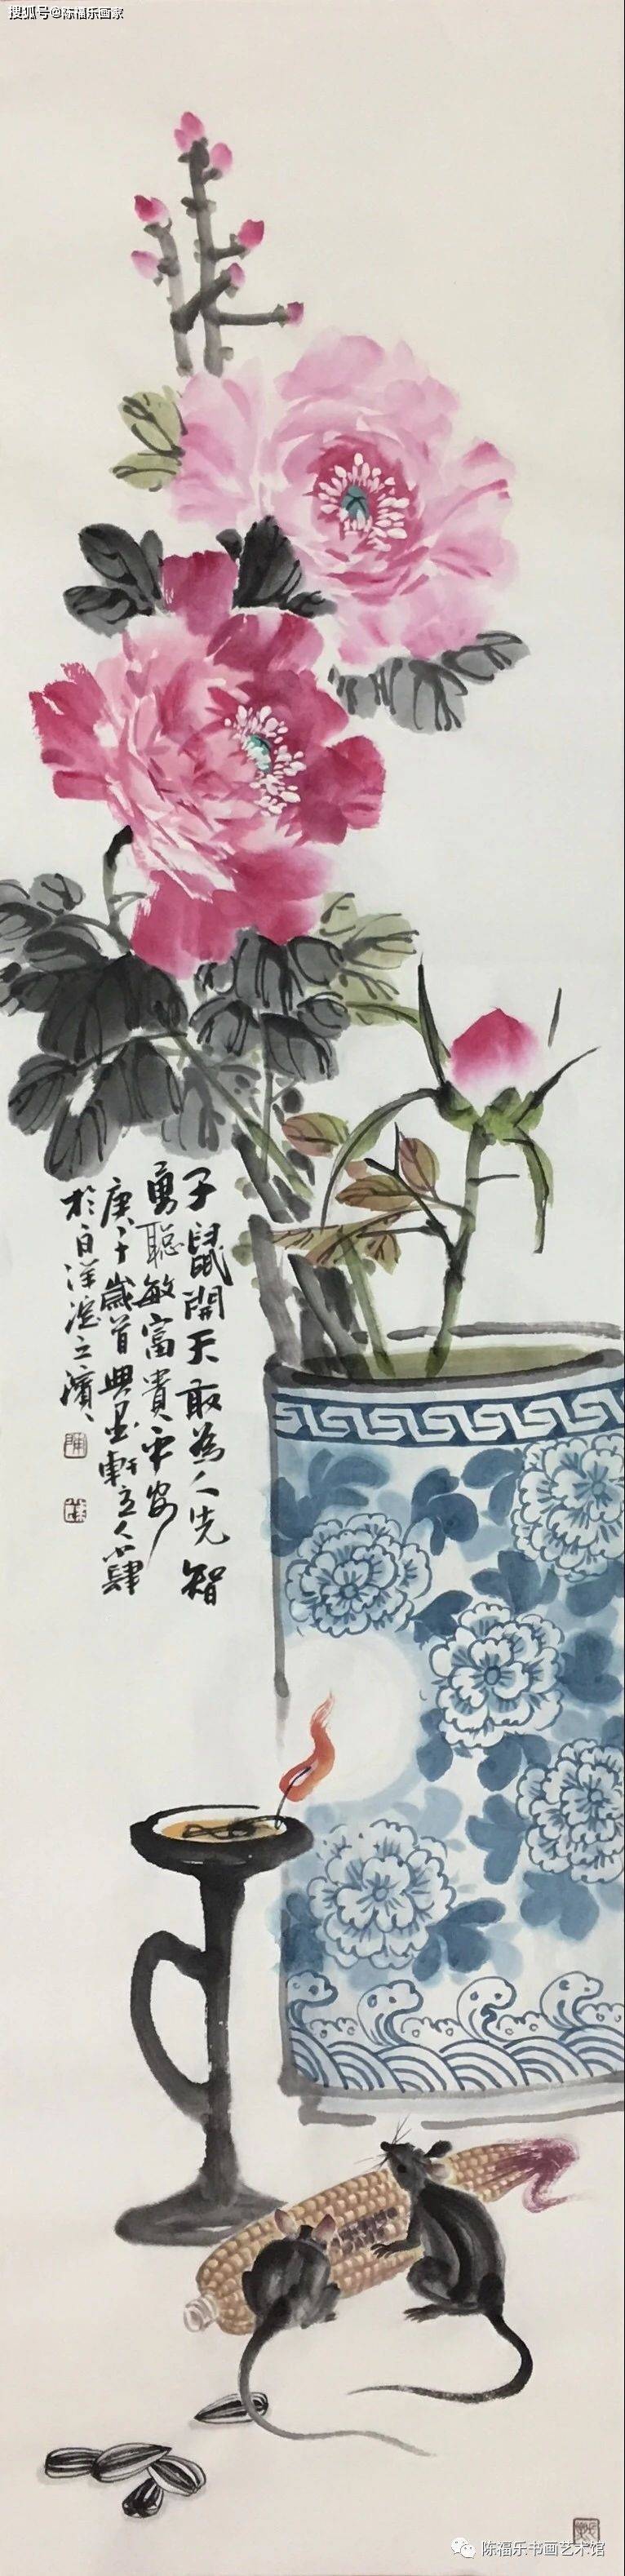 搜狐号@陈福乐画家
子鼠開天敢為人先智
勇聪敏富貴平安
庚子歲首興墨軒主人小肆
於白洋淀之濱
陈福乐书画艺术馆